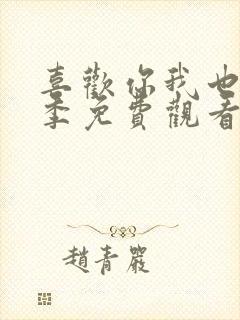 喜歡你我也
季免費觀看
趙青嚴